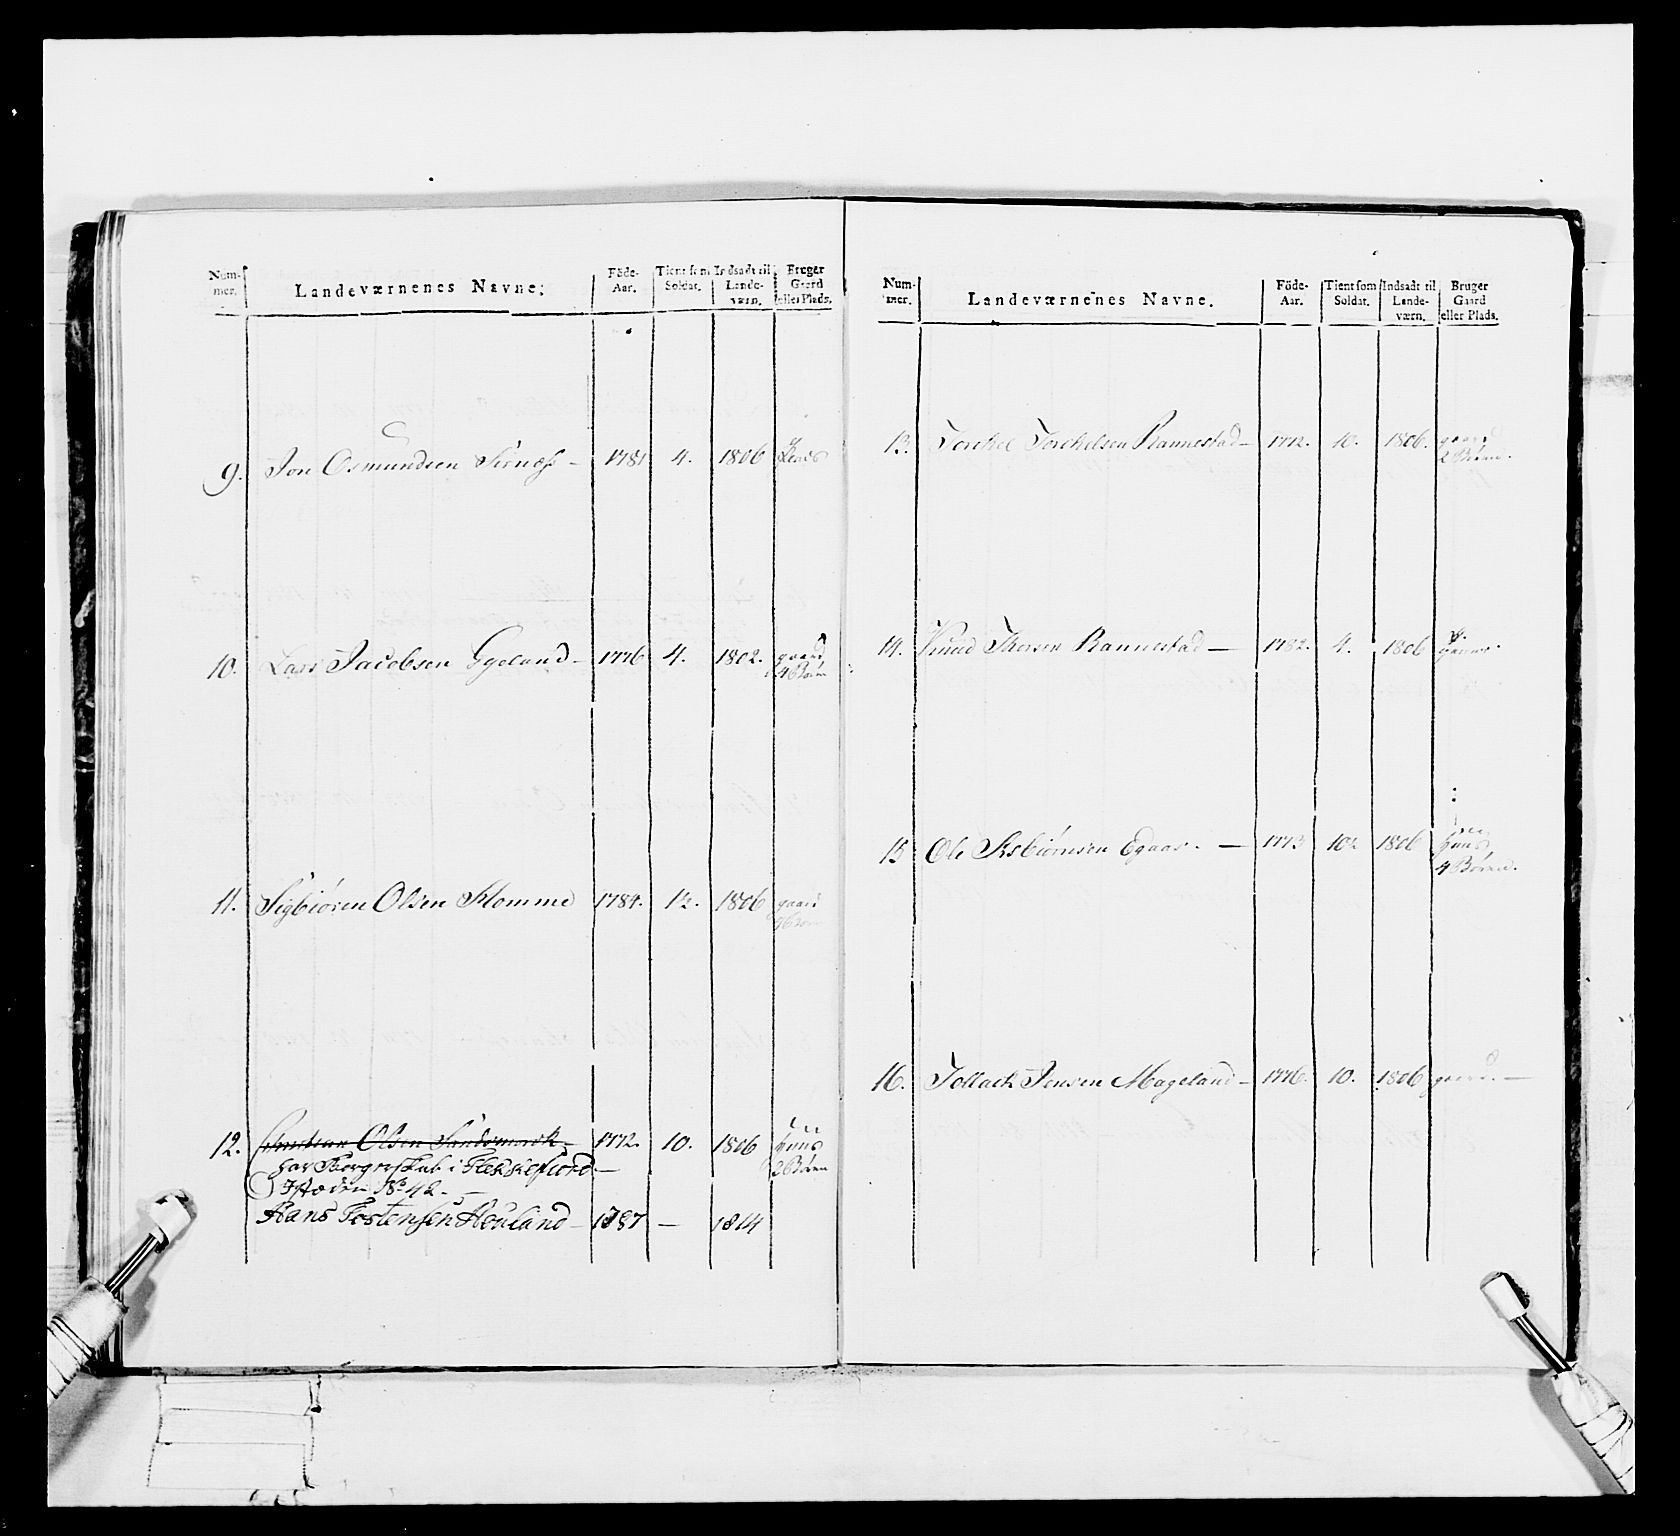 Num-
mer.
Landeværnenes Navne.
Föde-
Aar.
Tient som
Soldat.
Indsadt til
Lande-
værn.
Bruger
Gaard
eller Plads.
9. Jon Osmundsen Sirnæs - 1781 4. 1806
10. Lars Jacobsen Egeland - 1776 4. 1802. gaard
4 Börn
11. Sigbiören Olsen Stomme 1784. 12. 1806 gaard
12. Christian Olsen Sandsmark - 1772. 10. 1806 huus
2 Börn
har Borgerskab i Flekkefiord. -
Istæden No 42. -
Hans Tostensen Houland - 1787 - 1814
Num-
mer.
Landeværnenes Navne.
Föde-
Aar.
Tient som
Soldat.
Indsadt til
Lande-
værn.
Bruger
Gaard
eller Plads.
13. Torchel Torchelsen Rannestad - 1772. 10. 1806. gaard
2 Börn.
14. Knud Thorsen Rannestad - 1782. 4. 1806
15 Ole Asbiörnsen Egaas. - 1773 10. 1806 huus
4 Börn.
16. Tollach Jensen Mageland - 1776. 10. 1806 gaard. -